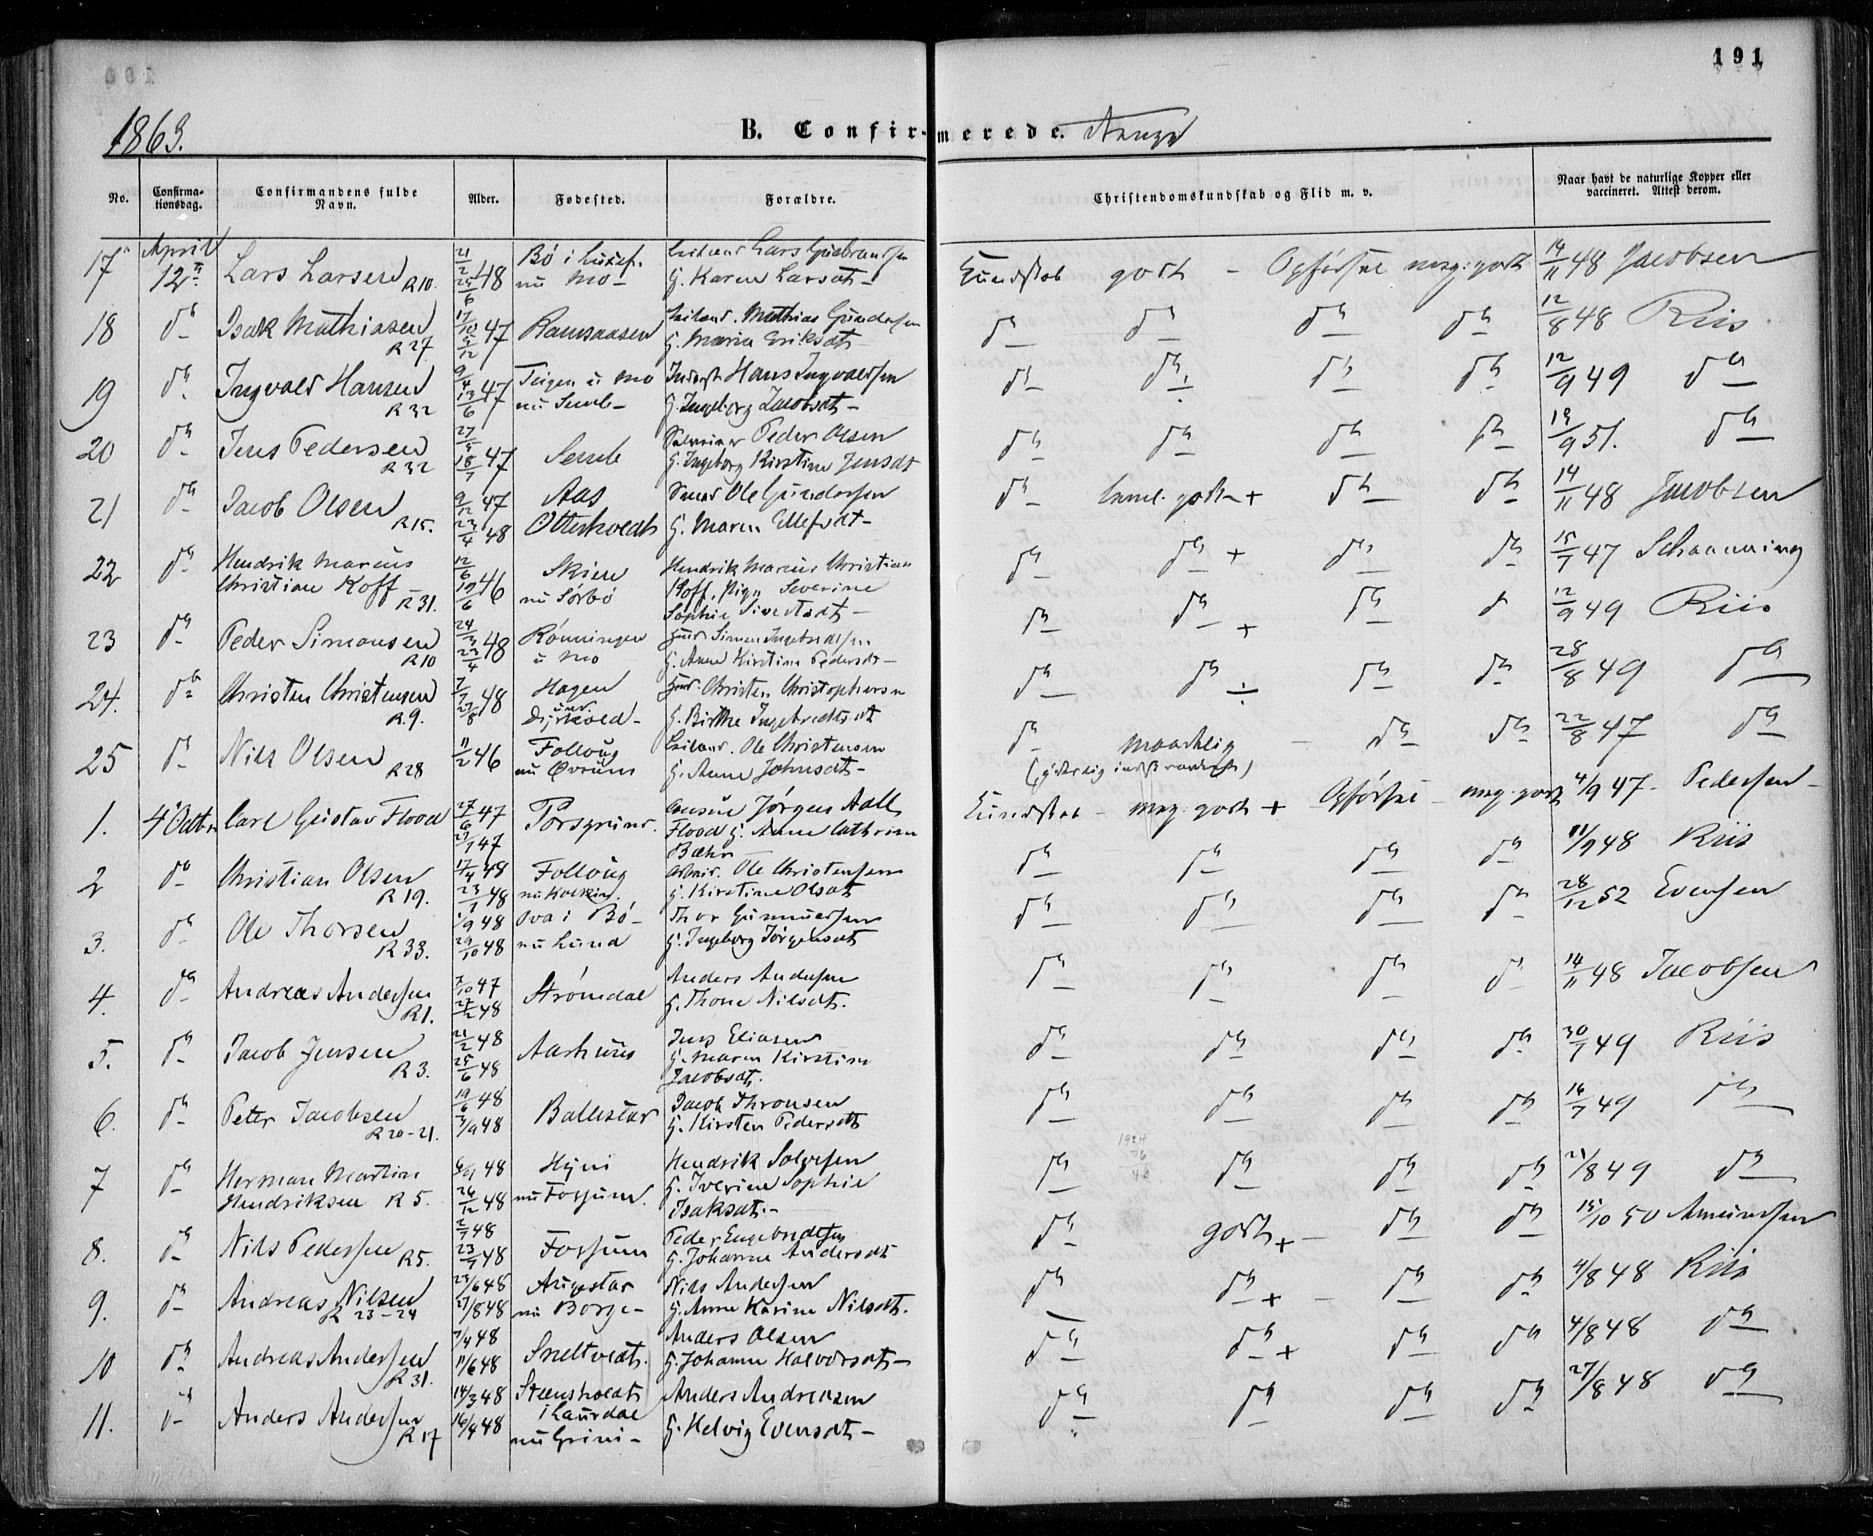 191
1863.
B. Confirmerede. Drenge
No. Confirmationsdag. Confirmandens fulde Navn. Alder. Fødested. Forældre. Christendomskundskab og Flid m. v. Naar havt de naturlige Kopper eller vaccineret. Attest derom.
17 April 12te Lars Larsen R10. 21/2 25/6 48 Bö i nu Mo - Lars Gulbrandsen G. Karen Larsdt - Kundskab godt - Opførsel meg: godt 14/11 48 Jacobsen
18 do Isak Mathiasen R27. 17/10 5/12 47 Ramsaasen Mathias Gundersen G. Maria Eriksdt do do do do 12/8 48 Riis
19 do Ingvald Hansen R32 9/4 13/6 47 Teigen u Mo nu Semb - Inderst Hans Ingvaldsen G. Ingeborg Jacobsdt - do do ÷ do do 12/9 49 do
20 do Jens Pedersen R32 27/5 18/7 47 Semb Peder Olsen G. Ingeborg Kirstine Jensdt do do do do 19/9 51. do
21 do Jacob Olsen R15. 9/12 47 23/4 48 Aas Otterholdt Ole Gundersen G. Maren Ellefsdt - do godt + do do 14/11 48 Jacobsen
22 do Hendrik Marcus Christian Hoff R31. 12/6 19/6 46 Skien nu Sörbö Hendrik Marcus Christian Hoff, Pige Severine Sophie Sivertsdt - do do + do do 15/7 47 Schanning
23 do Peder Simonsen R10 24/3 23/4 48 Rönningen u Mo Simen Ingebretsen G. Anne Kirstine Pedersdt - do do + do do 12/9 49 Riis
24. do Christen Christensen R.9. 7/7 27/8 48 Hagen und. Dyrkold - Christen Christophersen G. Birthe Ingebretsdt do do ÷ do do 28/8 49 do
25 do Nils Olsen R28 11/2 46 Folloug nu Övrum Ole Christensen G. Anne Johnsdt - do maadelig - do do 22/8 47 do
1. 4 Octbr Carl Gustav Flood 27/6 47 27/7 47 Porsgrund. Consul Jörgen Aall Flood G. Anne Cathrine Bæhr Kundskab - meg. godt + Opførsel - meg: godt 4/9 47 - Pedersen -
2 do Christian Olsen R19. 17/4 48 23/7 48 Folloug Ole Christensen G. Kirstine Olsdt do do do do 11/9 48 Riis
3. do Ole Thorsen R33. 1/9 48 29/10 48 Bö - nu Lund Thor Gunnersen G. Ingeborg Jörgensdt do do do do 28/12 52 Evensen
4. do Andreas Andersen R1. 7/10 47 27/2 48 Strömdal Anders Andersen G. Thone Nilsdt. do do do do 14/11 48 Jacobsen
5. do Jacob Jensen R3. 21/2 48 25/6 48 Aarhuus Jens Eliasen G. Maren Kirstine Jacobsdt. do do do do 30/7 49 Riis
6. do Peter Jacobsen R20-21. 19/6 48 3/9 48 Ballestad Jacob Thronsen G. Kirsten Pedersdt do do do do 16/7 49 do
7 do Herman Martin Hendriksen R5. 6/9 48 26/12 48 Hyni nu Fossum. Hendrik Solvesen G. Iverine Sophie Isaksdt. - do do do do 21/8 49 do
8. do Nils Pedersen R5. 2/7 48 23/7 48 Fossum Peder Engebretsen G. Johanne Andersdt do godt + - do do 15/10 50 Amundsen
9. do Andreas Nilsen R 23-24 23/6 48 27/8 48 Augestad nu Borge - Nils Andersen G. Anne Karine Nilsdt. do do + - do do 4/8 48 Riis
10 do Andreas Andersen R31. 7/4 48 11/6 48 Sneltvedt. Anders Olsen G. Johanne Halvorsdt - do do + do do 4/8 48 do
11. do Anders Andersen R17 14/3 48 16/4 48 Steensholdt i Laurdal nu Grini - Anders Andreasen G. Helvig Evensdt - do do do do 27/8 48 do